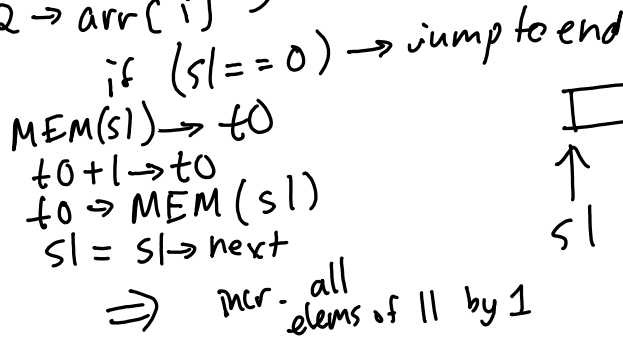 2 → arr[i]
if (s1 == 0) → jump to end
MEM(s1) → t0
t0 + 1 → t0
t0 → MEM(s1)
s1 = s1 → next
s1
⇒ incr. all
elems of ll by 1